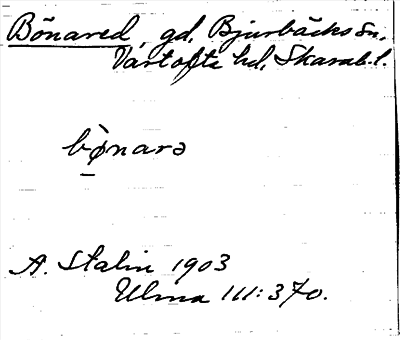 Bönared, gd, Bjurbäcks sn,
Vartofta hd, Skarab. l.
bø̀narə
A. Stalin 1903
Ulma 111: 370.